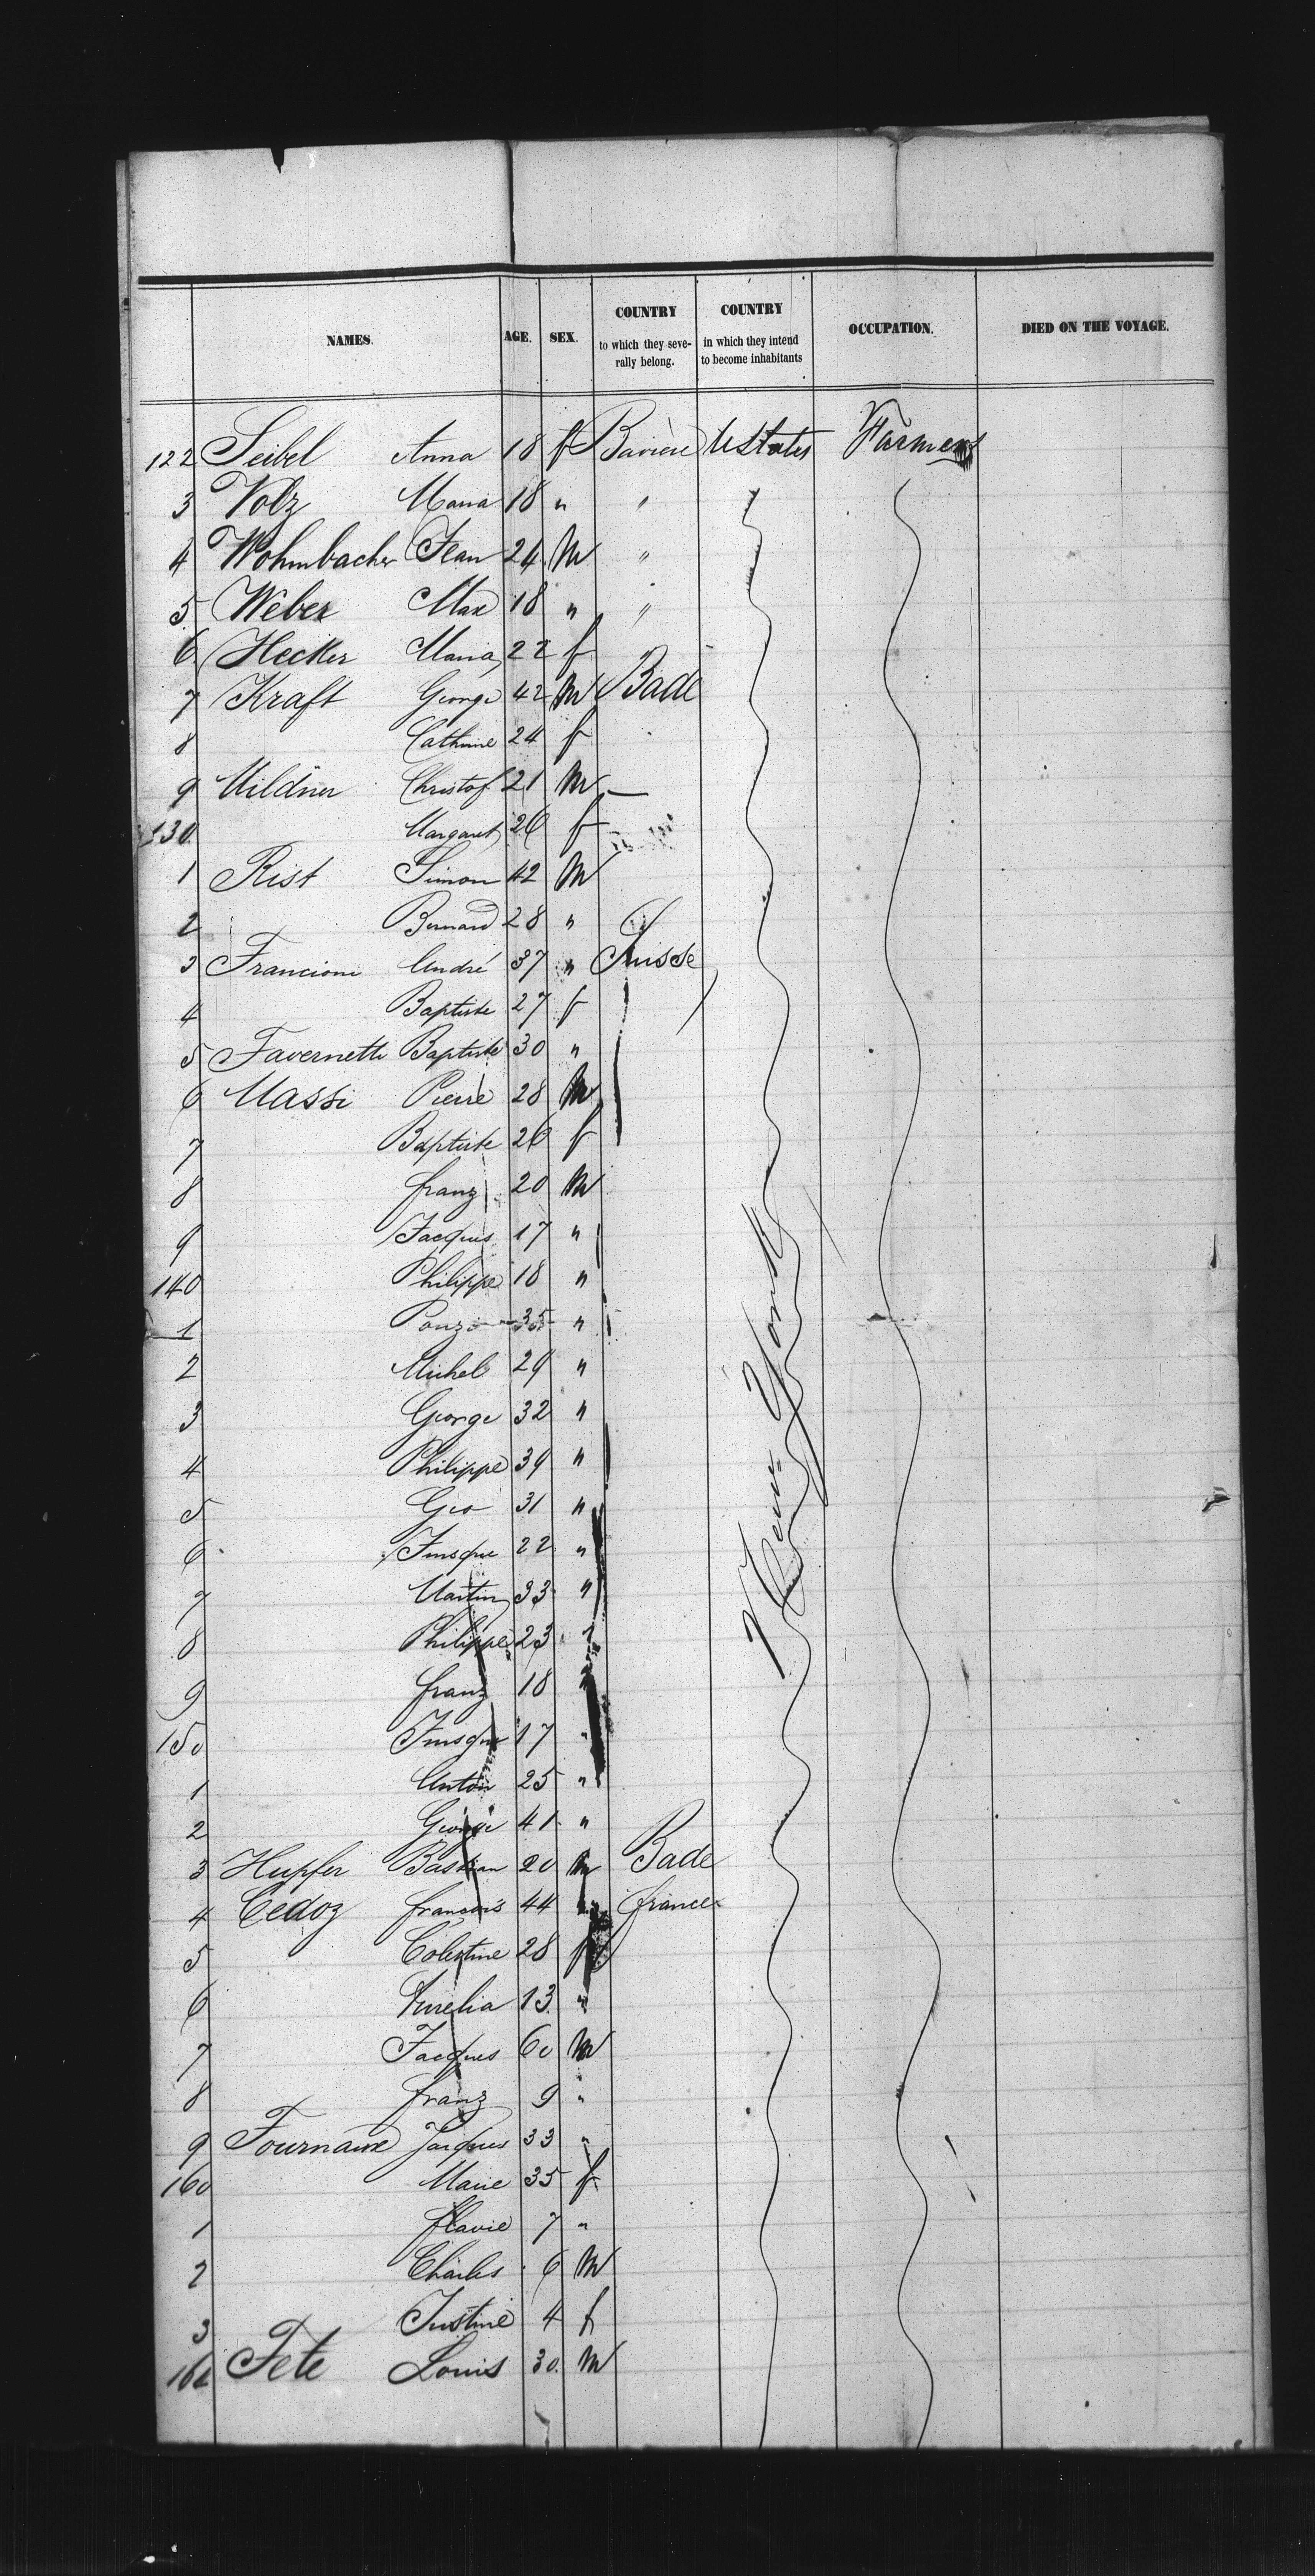 NAMES. AGE. SEX. COUNTRY to which they severally belong. COUNTRY in which they intend to become inhabitants OCCUPATION. DIED ON THE VOYAGE.
122 Seibel Anna 18 f Baviere UStates Farmers
3 Volz Maria 18 " "
4 Wohmbacher Jean 24 M "
5 Weber Max 18 " "
6 Hecker Maria 22 f
7 Kraft George 42 M Bade
8 Catherine 24 f
9 Mildner Christof 21 M —
130 Margaret 26 f
1 Rist Simon 42 M
2 Bernard 28 "
3 Francioni André 37 " Suisse
4 Baptiste 27 f
5 Favernetti Baptiste 30 "
6 Massi Pierre 28 M
7 Baptiste 26 f
8 franz 20 M
9 Jacques 17 "
140 Philippe 18 "
1 Ponzo 35 "
2 Michel 29 "
3 George 32 "
4 Philippe 39 "
5 Geo 31 "
6 22 "
7 Martin 33 "
8 Philippe 23 "
9 franz 18 "
150 17 "
1 Anton 25 "
2 George 41 "
3 Hupfer Bastian 20 M Bade
4 Cedoz francois 44 france
5 Celestine 28 f
6 Aurelia 13 "
7 Jacques 60 M
8 franz 9 "
9 Fournaise Jacques 33 "
160 Marie 35 f
1 flavie 7 "
2 Charles 6 M
3 Justine 4 f
164 Fete Louis 30 M
New York